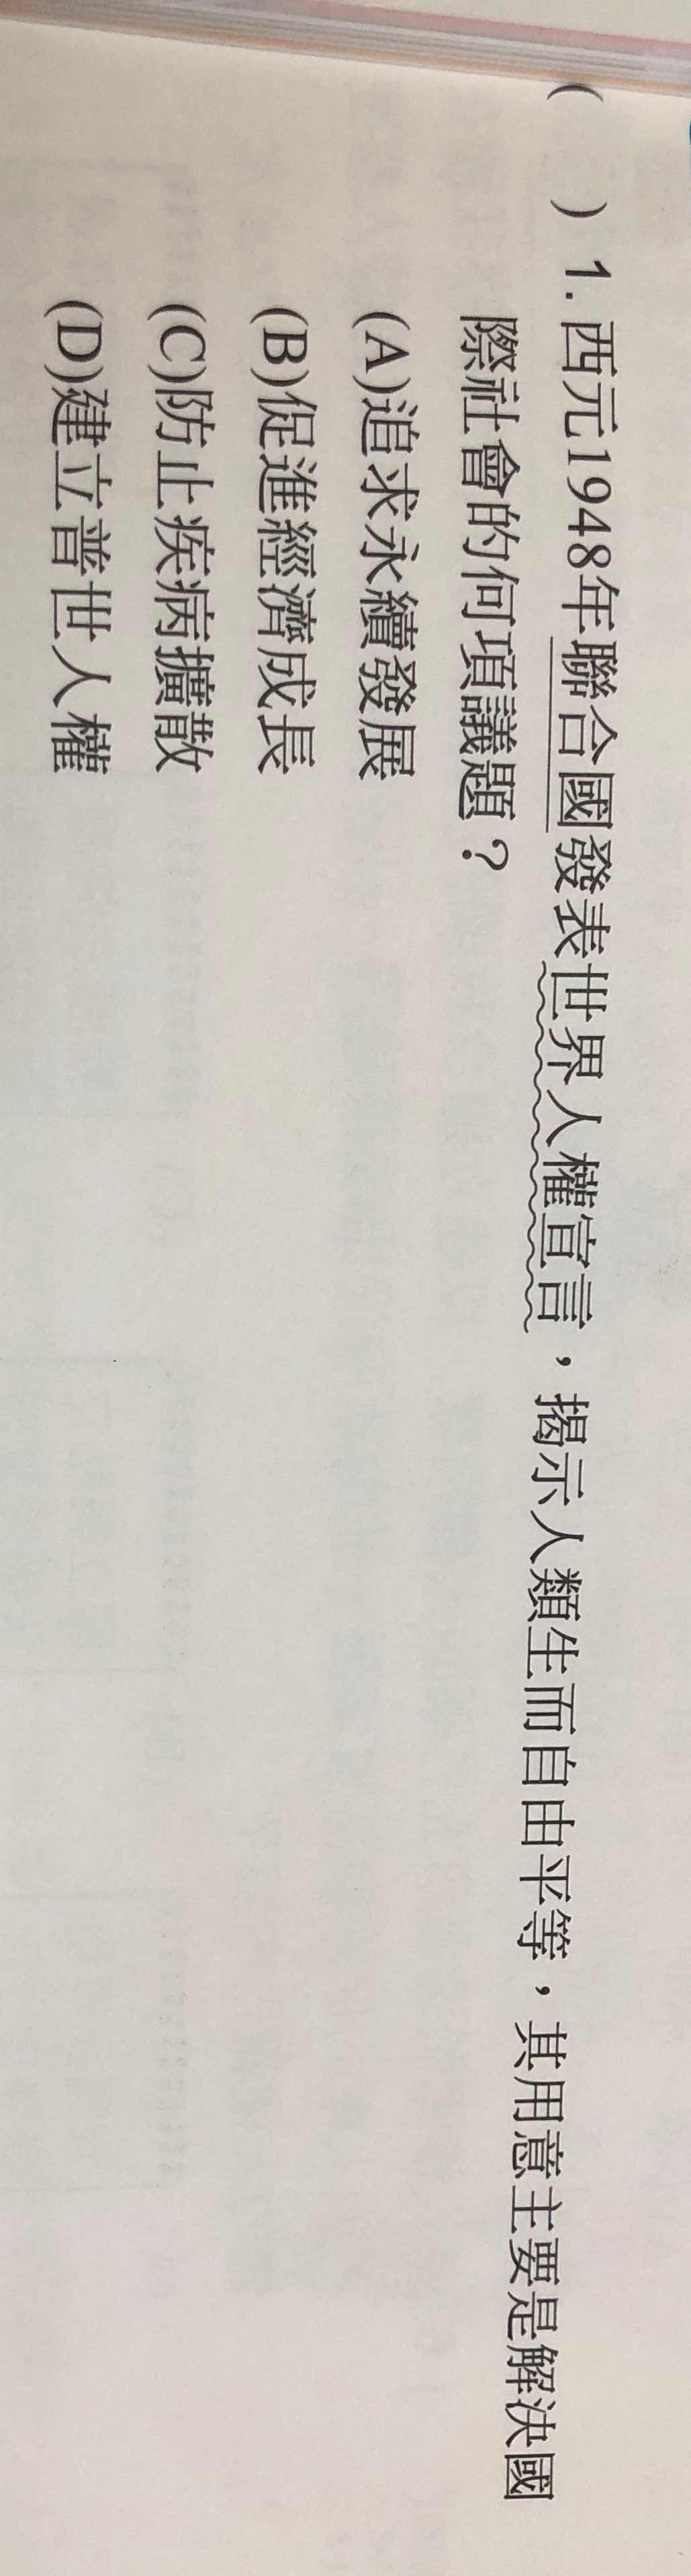 (　) 1. 西元1948年聯合國發表世界人權宣言，揭示人類生而自由平等，其用意主要是解決國
際社會的何項議題？
(A)追求永續發展
(B)促進經濟成長
(C)防止疾病擴散
(D)建立普世人權